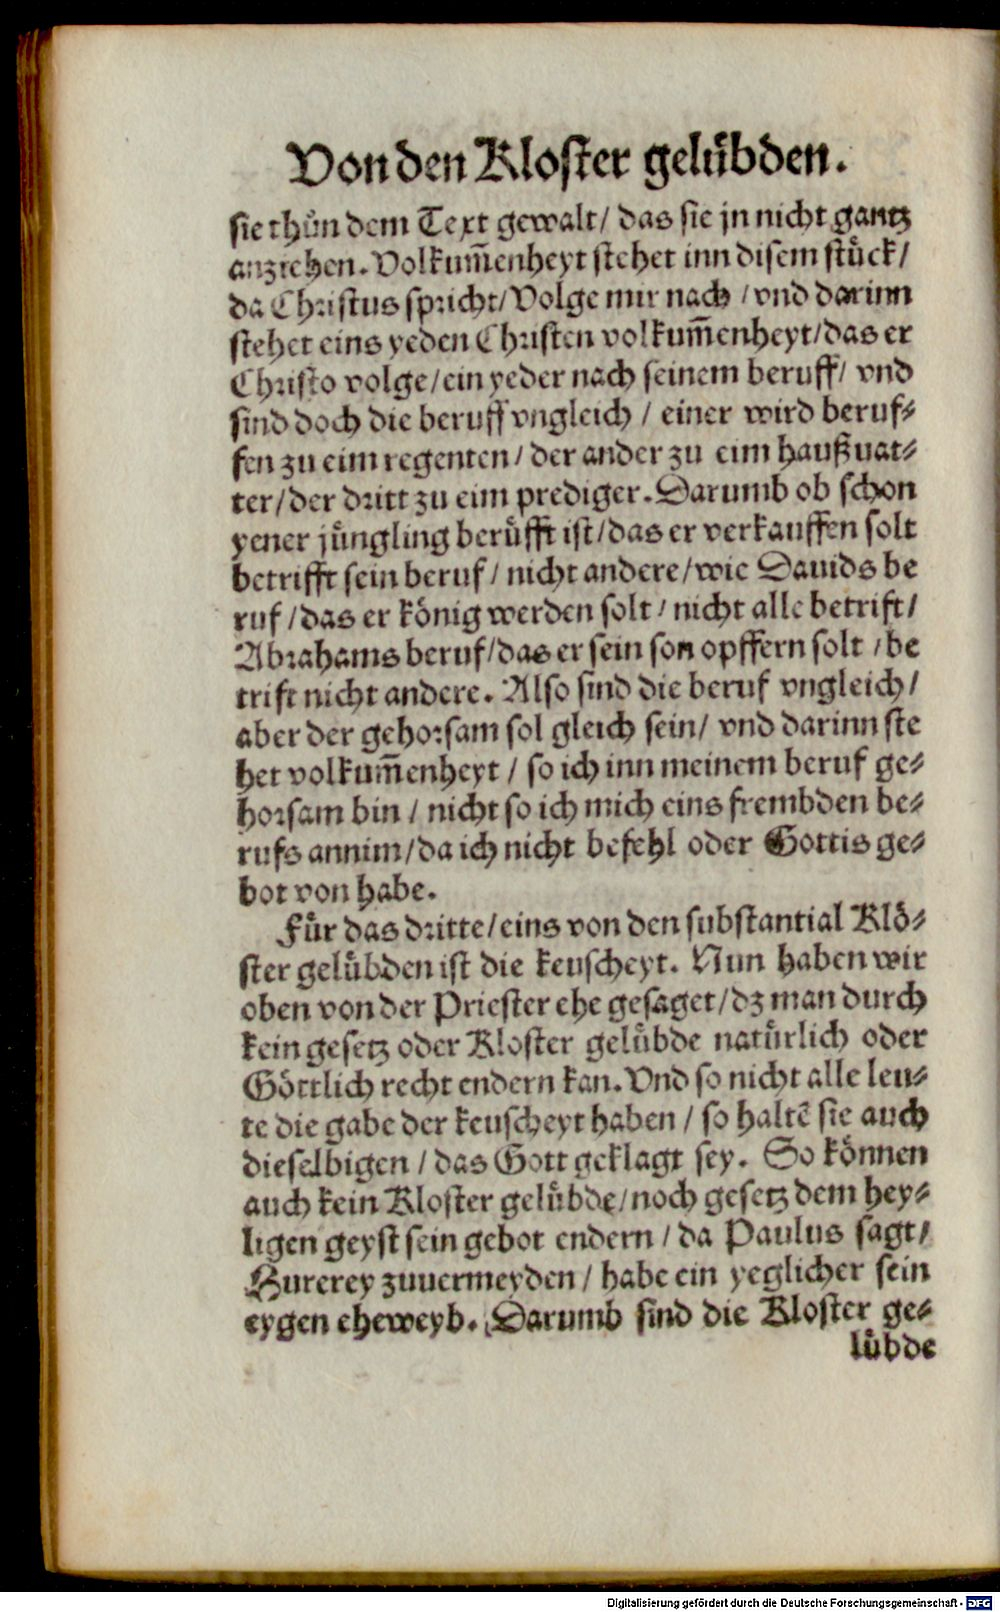 Von den Kloster gelübden.
sie thün dem Text gewalt/ das sie jn nicht gantz
anziehen. Volkum̃enheyt stehet inn disem stück/
da Christus spricht/ Volge mir nach / vnd darinn
stehet eins yeden Christen volkum̃enheyt/das er
Christo volge/ein yeder nach seinem beruff/ vnd
sind doch die beruff vngleich / einer wird beruf-
fen zu eim regenten/ der ander zu eim haußuat-
ter/der dritt zu eim prediger. Darumb ob schon
yener jüngling berüfft ist/das er verkauffen solt
betrifft sein beruf/ nicht andere/wie Dauids be
ruf /das er könig werden solt/ nicht alle betrift/
Abrahams beruf/das er sein son opffern solt /be
trift nicht andere. Also sind die beruf vngleich/
aber der gehorsam sol gleich sein/ vnd darinn ste
het volkum̃enheyt / so ich inn meinem beruf ge-
horsam bin / nicht so ich mich eins frembden be-
rufs annim/da ich nicht befehl oder Gottis ge-
bot von habe.
Für das dritte/eins von den substantial Klö-
ster gelübden ist die keuscheyt. Nun haben wir
oben von der Priester ehe gesaget/dz man durch
kein gesetz oder Kloster gelübde natürlich oder
Göttlich recht endern kan. Vnd so nicht alle leu-
te die gabe der keuscheyt haben / so haltē sie auch
dieselbigen / das Gott geklagt sey. So können
auch kein Kloster gelübde/noch gesetz dem hey-
ligen geyst sein gebot endern / da Paulus sagt/
Hurerey zuuermeyden / habe ein yeglicher sein
eygen eheweyb. Darumb sind die Kloster ge-
lübde
Digitalisierung gefördert durch die Deutsche Forschungsgemeinschaft - DFG